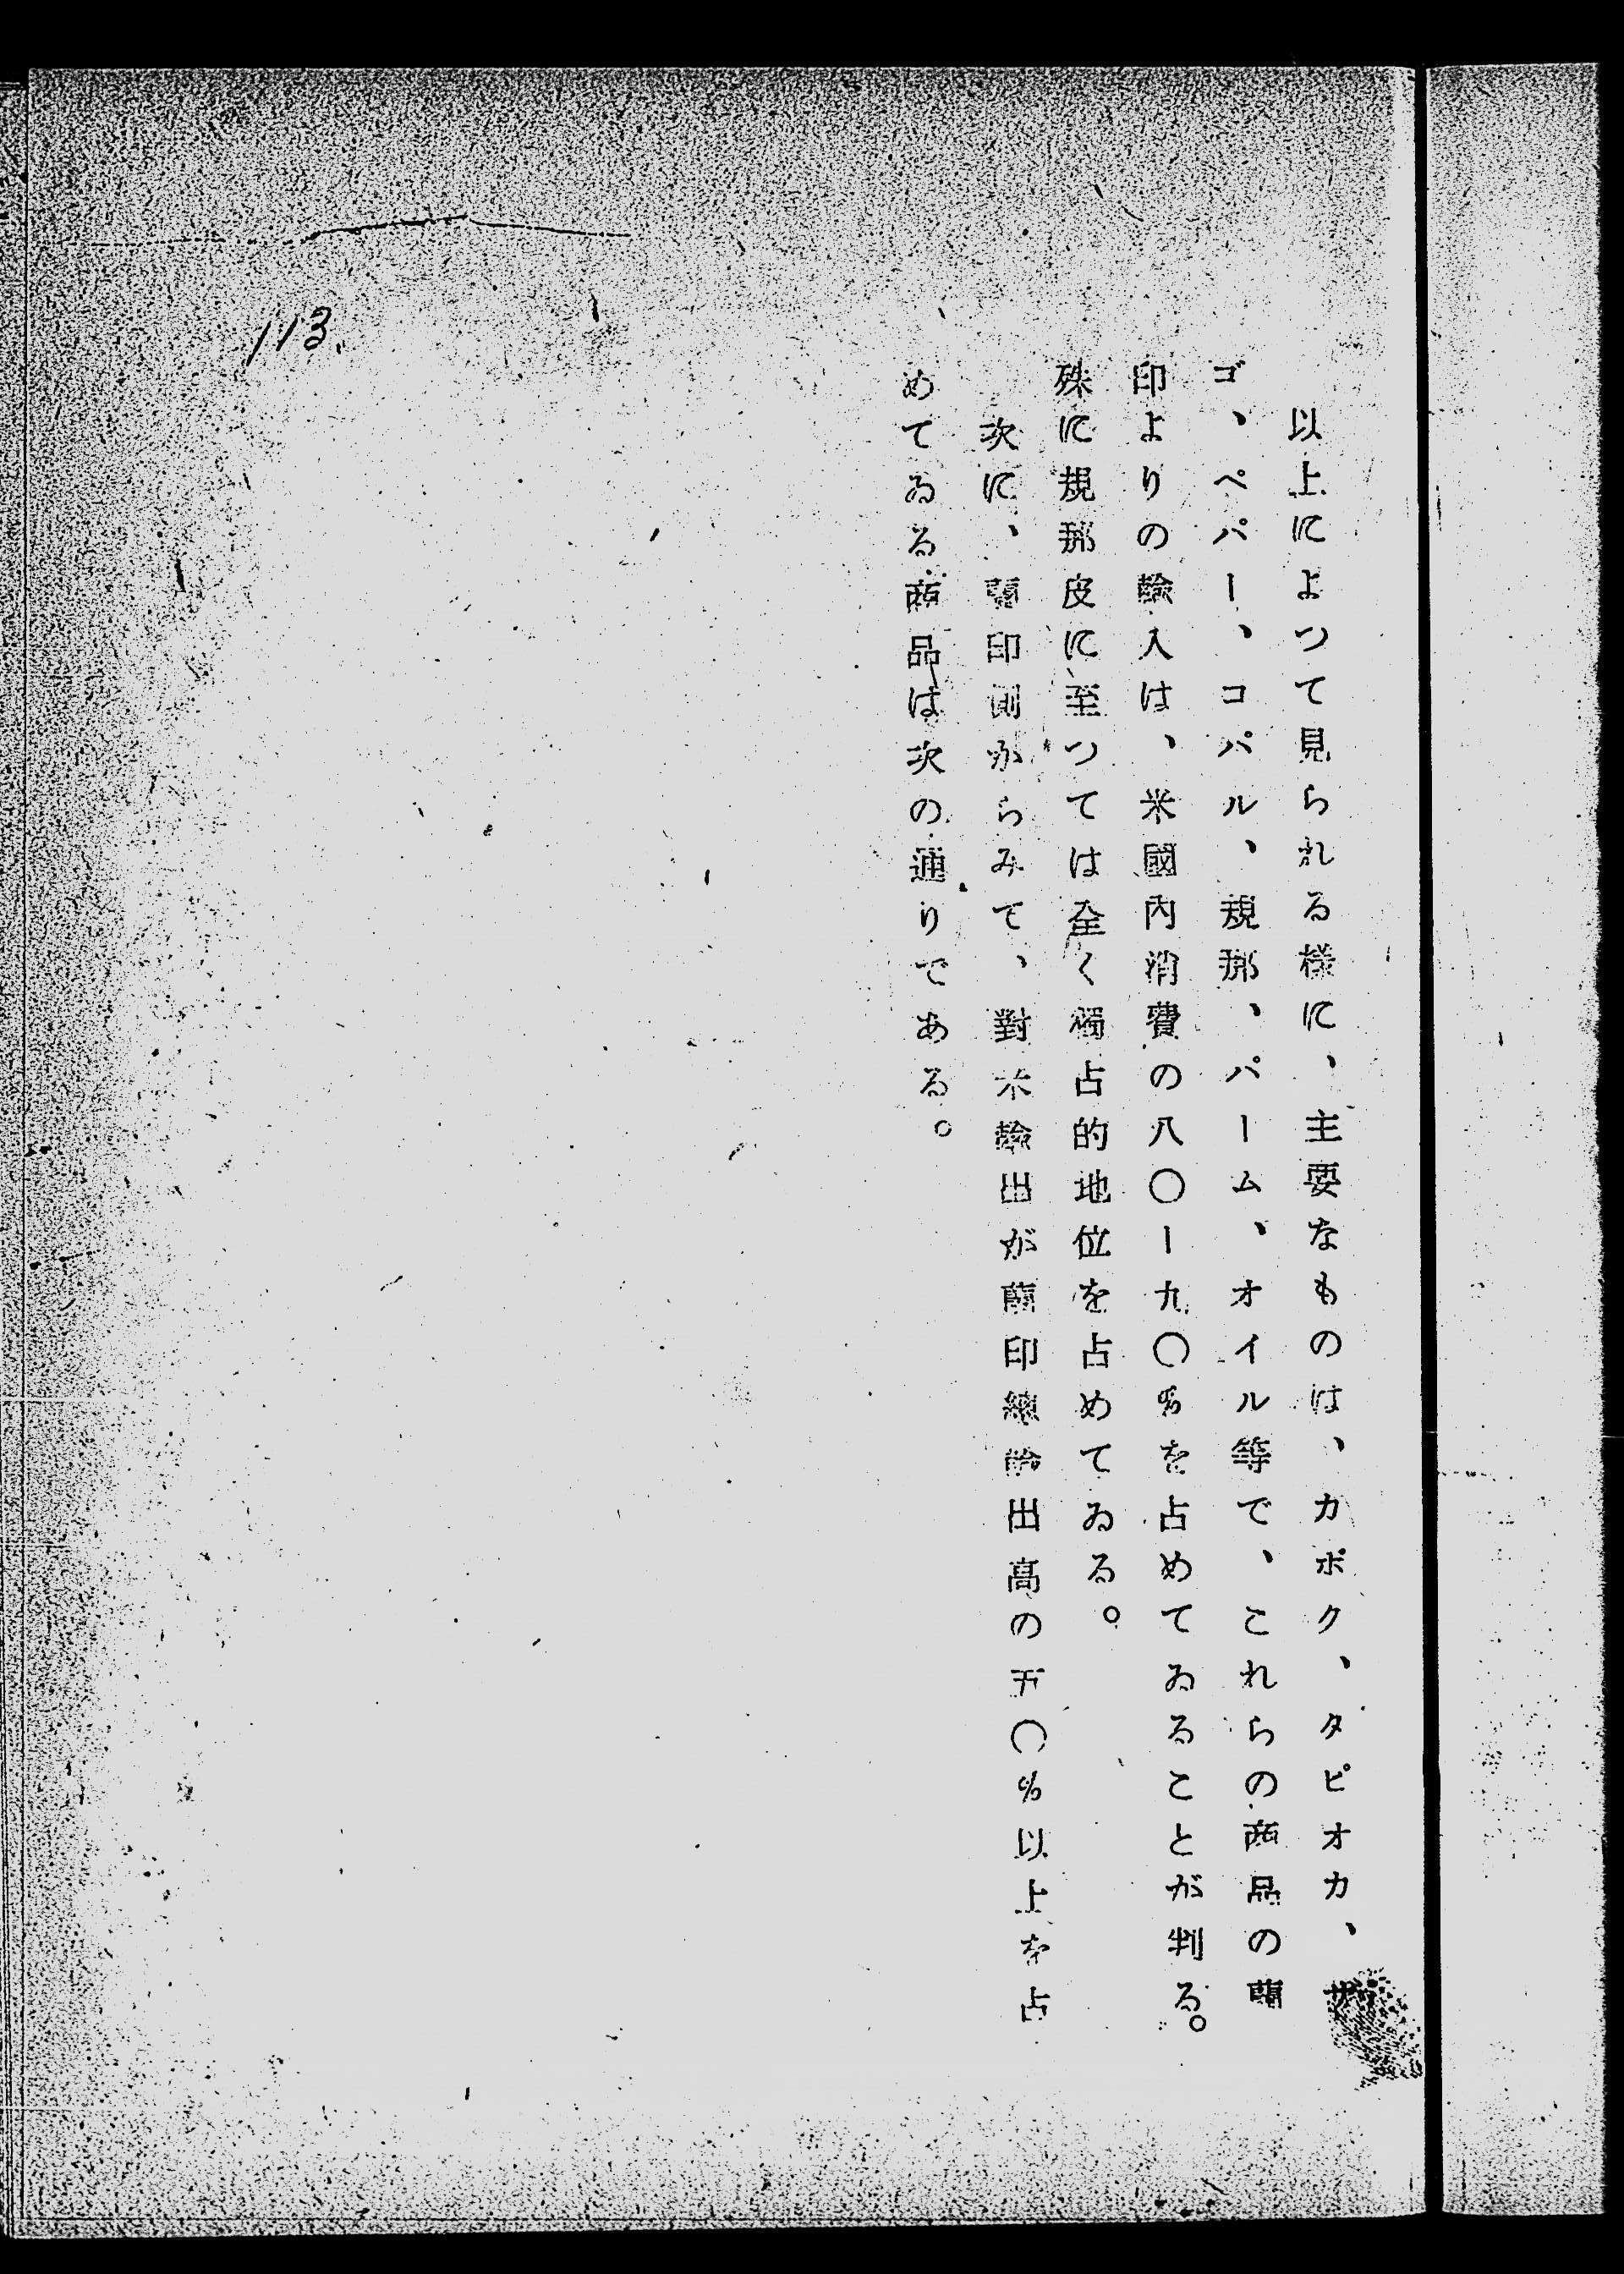 以上によつて見られる様に、主要なものは、カポク、タピオカ、サ
ゴ、ペパー、コパル、規那、パーム、オイル等で、これらの商品の蘭
印よりの輸入は、米國內消費の八〇ー九〇%を占めてゐることが判る。
殊に規那皮に至つては全く獨占的地位を占めてゐる。
次に、蘭印側からみて、對米輸出が蘭印總輸出高の五〇%以上を占
めてゐる商品は次の通りである。
113.